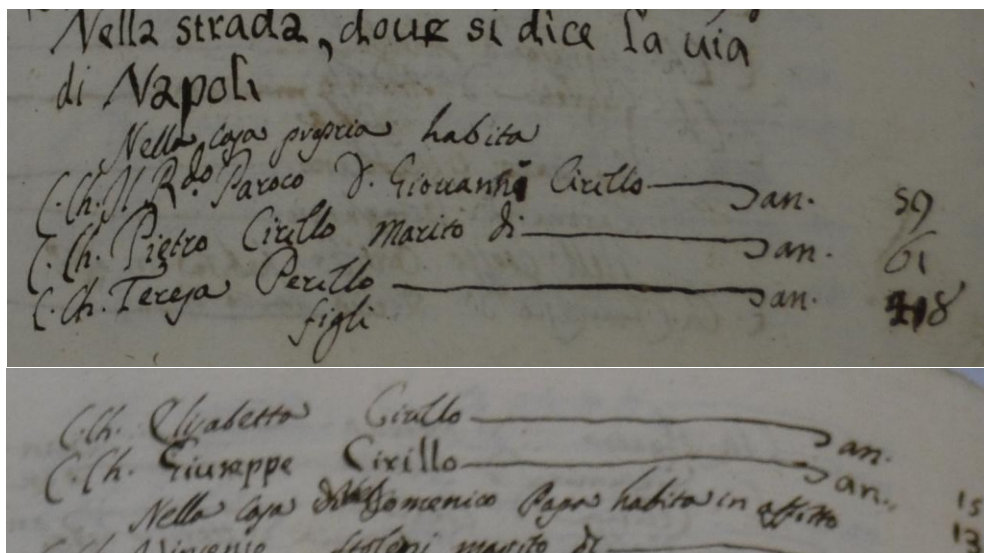 Nella strada, doue si dice la uia
di Napoli
Nella casa propria habita
C. Ch. Il R.do Paroco D. Giouanni Cirillo an. 59
C. Ch. Pietro Cirillo marito di an. 61
C. Ch. Teresa Perillo an. 48
figli
C. Ch. Elisabetta Cirillo an. 15
C. Ch. Giuseppe Cirillo an. 13
Nella casa Domenico Papa habita in affitto
C. Ch. Vincenzo marito di